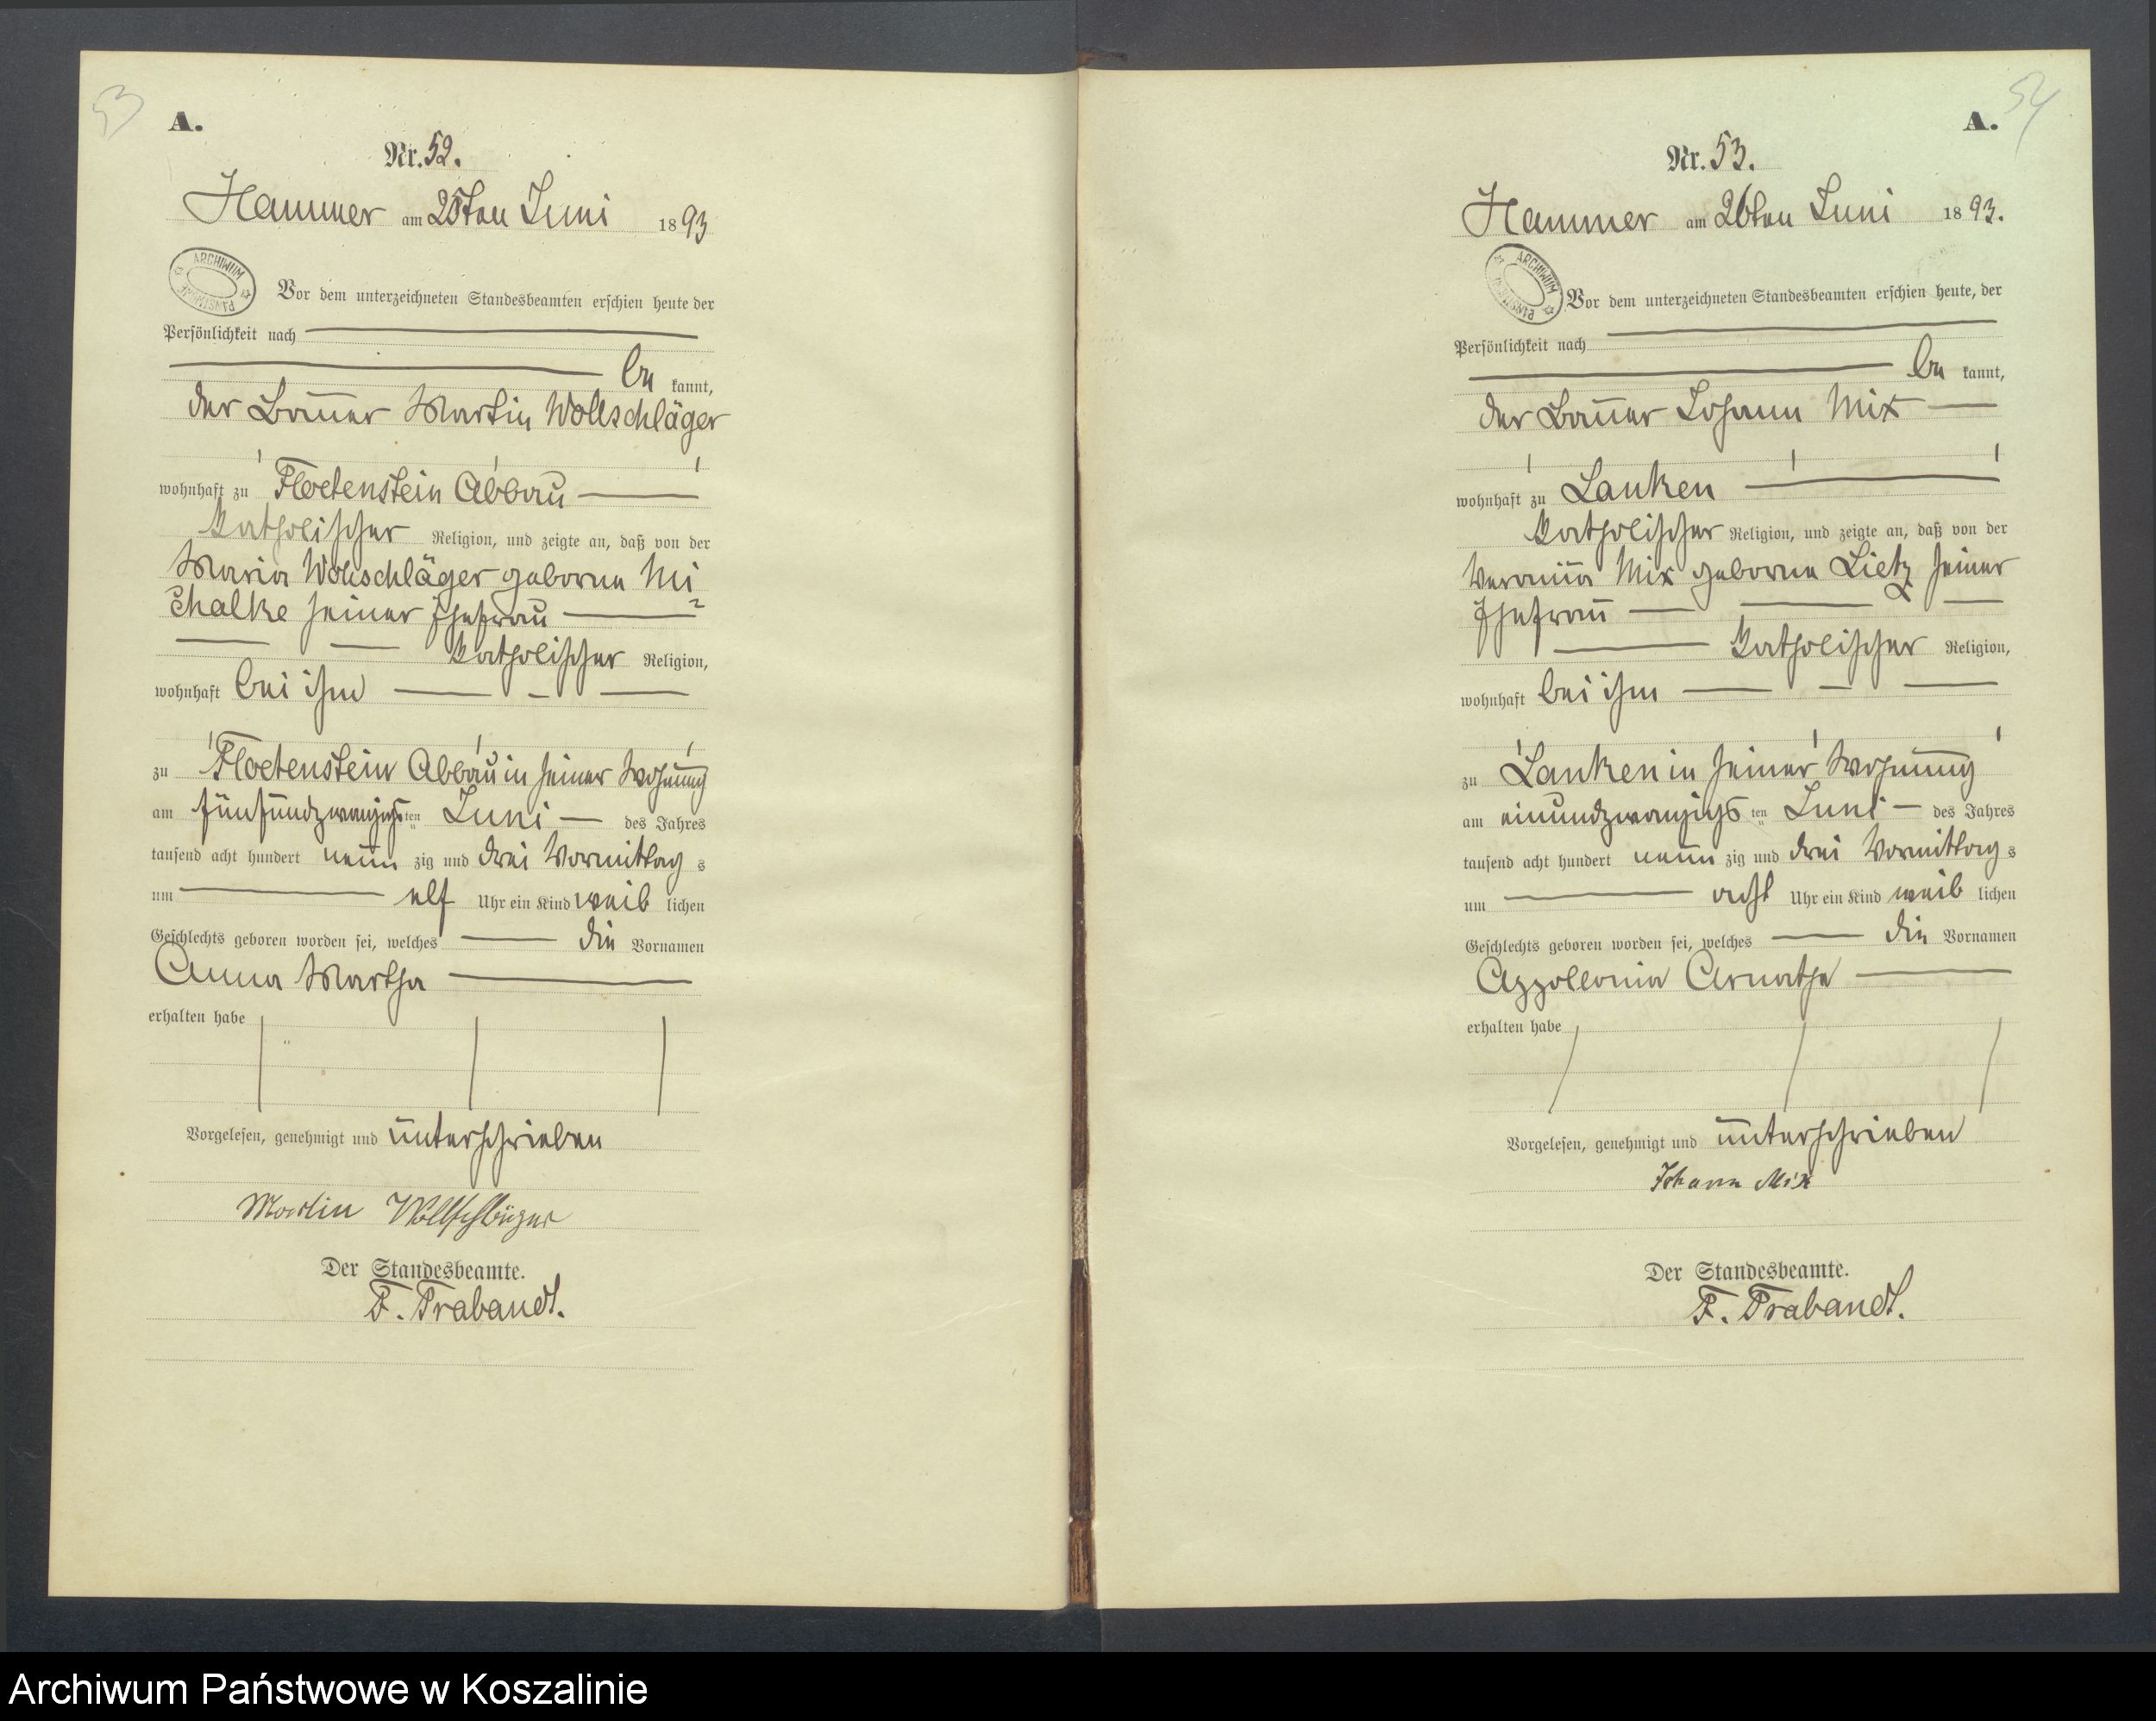 53
A.
Nr. 52.
Hammer am 25ten Juni 1893
ARCHIWUM
PAŃSTWOWE
Vor dem unterzeichneten Standesbeamten erschien heute der
Persönlichkeit nach
be kannt,
der Bauer Martin Wollschläger
wohnhaft zu Floetenstein Abbau
katholischer Religion, und zeigte an, daß von der
Maria Wollschläger geborne Mi
chalke seiner Ehefrau
katholischer Religion,
wohnhaft bei ihm
zu Floetenstein Abbau in seiner Wohnung
am fünfundzwanzigsten Juni des Jahres
tausend acht hundert neun zig und drei Vormittag s
um elf Uhr ein Kind weib lichen
Geschlechts geboren worden sei, welches die Vornamen
Anna Martha
erhalten habe
Vorgelesen, genehmigt und unterschrieben
Martin Wollschläger
Der Standesbeamte.
F. Trabandt.
54
A.
Nr. 53.
Hammer am 26ten Juni 1893.
ARCHIWUM
PAŃSTWOWE
Vor dem unterzeichneten Standesbeamten erschien heute, der
Persönlichkeit nach
be kannt,
der Bauer Johann Mix
wohnhaft zu Lanken
katholischer Religion, und zeigte an, daß von der
Veronika Mix geborne Lietz seiner
Ehefrau
katholischer Religion,
wohnhaft bei ihm
zu Lanken in seiner Wohnung
am einundzwanzigs ten Juni des Jahres
tausend acht hundert neun zig und drei Vormittag s
um acht Uhr ein Kind weib lichen
Geschlechts geboren worden sei, welches die Vornamen
Appollonia
erhalten habe
Vorgelesen, genehmigt und unterschrieben
Johann Mix
Der Standesbeamte.
F. Trabandt.
Archiwum Państwowe w Koszalinie